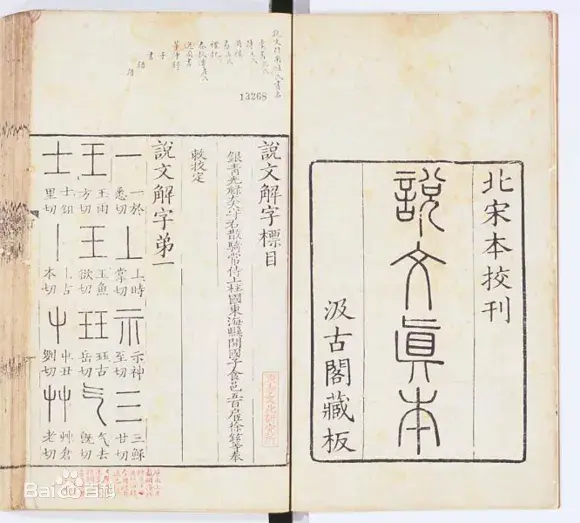 北宋本挍刊
說文眞本
汲古閣藏板
13268
說文解字標目
銀青光祿大夫守右散騎常侍上柱國東海縣開國子食邑五百戶臣徐鉉等奉
敕挍定
說文解字第一
一 一於悉切 丄 丄時掌切 示 示神至切 三 三穌甘切
王 王雨方切 玉 王魚欲切 玨 玨古岳切 气 气去旣切
士 士鉏里切 丨 丨古本切 屮 屮丑切 艸 艸倉老切
Bai百科